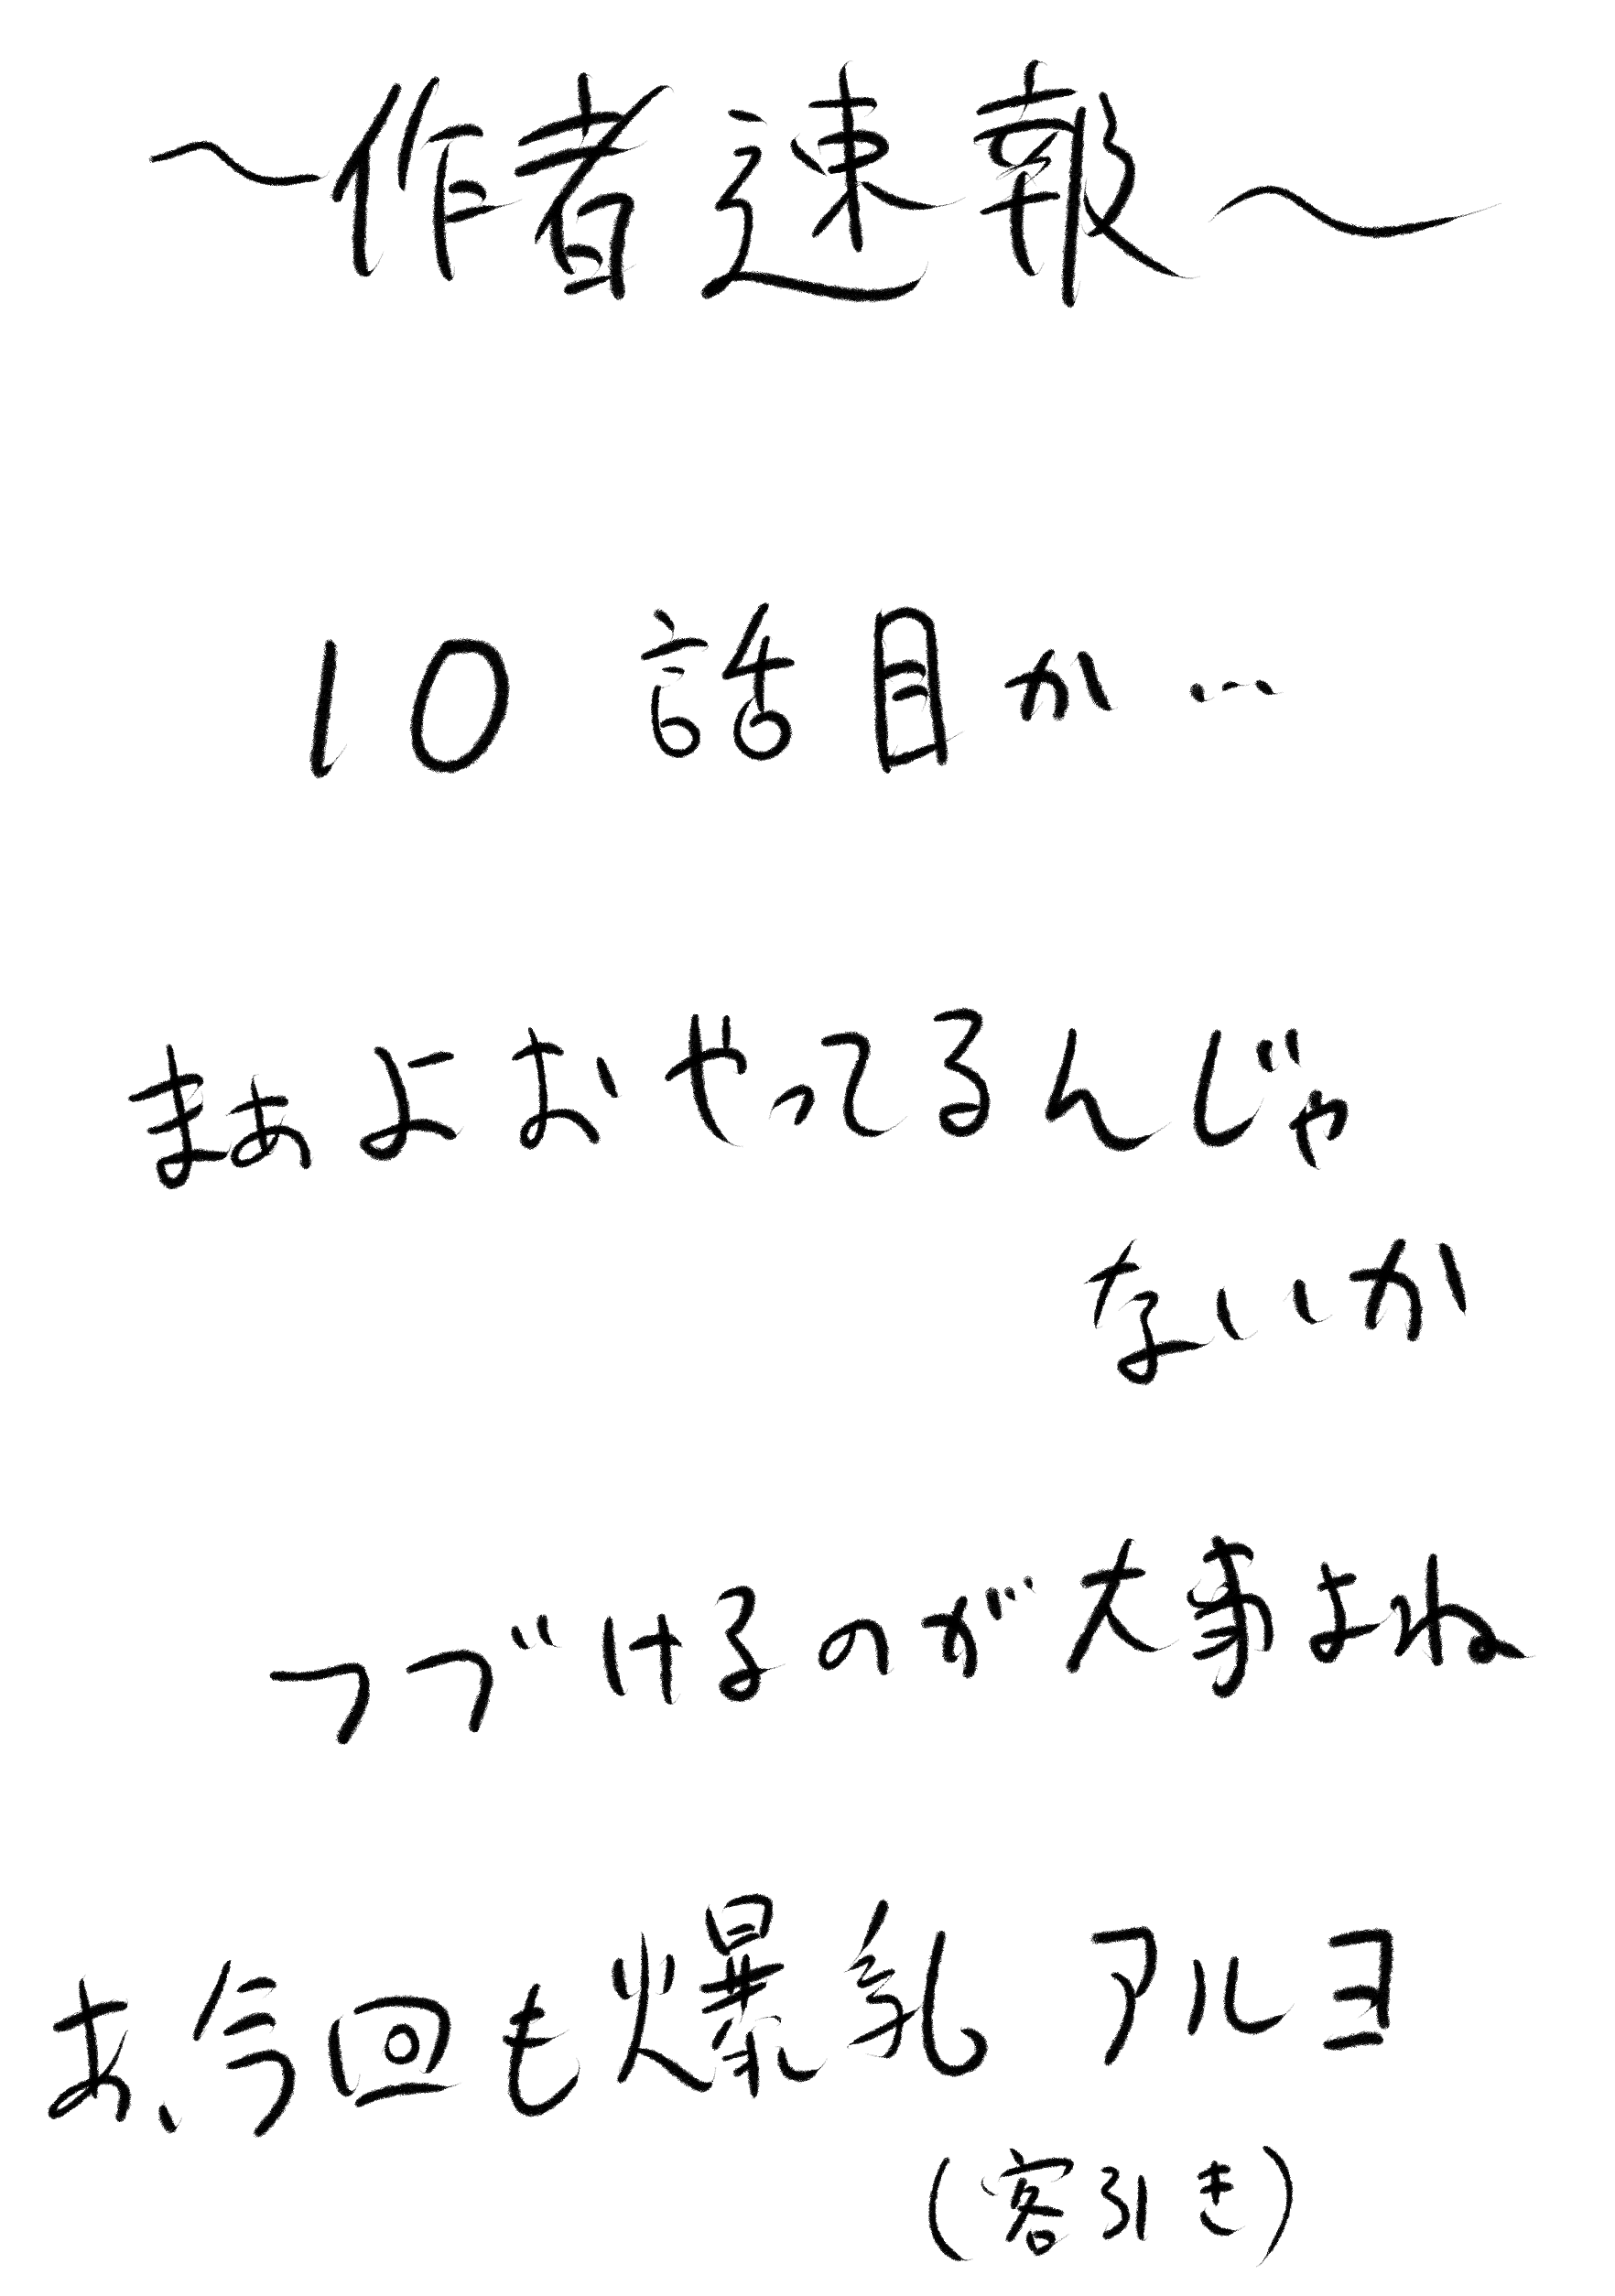 〜作者速報〜
10話目か…
まぁよおやってるんじゃ
ないか
つづけるのが大事よね
あ、今回も爆乳アルヨ
(客引き)